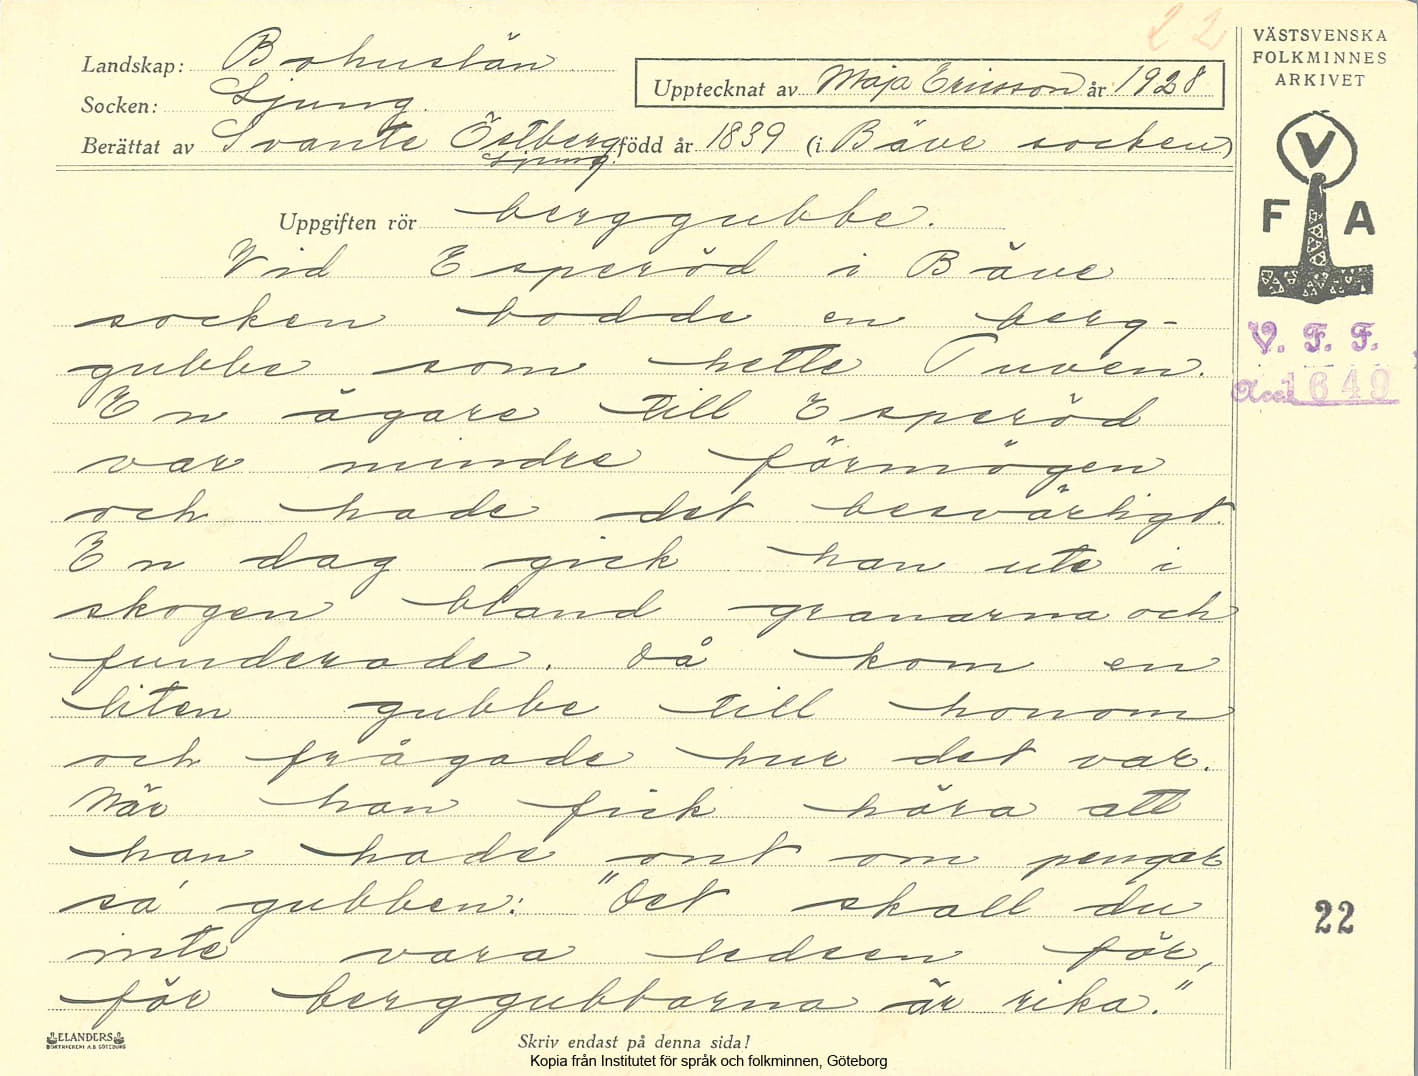 22
Landskap: Bohuslän
Socken: Ljung.
Upptecknat av Maja Ericsson år 1928
Berättat av Svante Östberg född år 1839 (i Bäve socken)
Ljung.
Uppgiften rör berggubbe.
Vid Esperöd i Bäve
socken bodde en berg-
gubbe som hette Tuven.
En ägare till Esperöd
var mindre förmögen
och hade det besvärligt.
En dag gick han ute i
skogen bland granarna och
funderade. Då kom en
liten gubbe till honom
och frågade hur det var.
När han fick höra att
han hade ont om pengar
sa' gubben: "Det skall du
inte vara ledsen för,
för berggubbarna är rika."
ELANDERS
BOKTRYCKERI A.B. GÖTEBORG
Skriv endast på denna sida!
Kopia från Institutet för språk och folkminnen, Göteborg
VÄSTSVENSKA
FOLKMINNES
ARKIVET
V
F A
V. F. F.
Acc. 1649
22